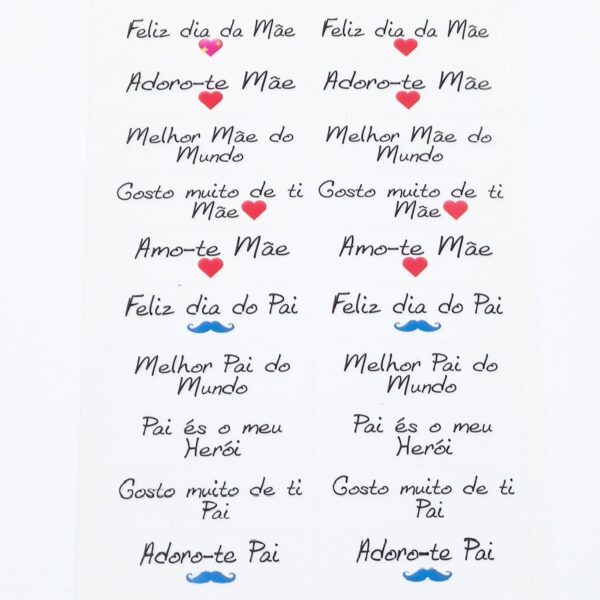 Feliz dia da Mãe
Feliz dia da Mãe
Adoro-te Mãe
Adoro-te Mãe
Melhor Mãe do
Mundo
Melhor Mãe do
Mundo
Gosto muito de ti
Mãe
Gosto muito de ti
Mãe
Amo-te Mãe
Amo-te Mãe
Feliz dia do Pai
Feliz dia do Pai
Melhor Pai do
Mundo
Melhor Pai do
Mundo
Pai és o meu
Herói
Pai és o meu
Herói
Gosto muito de ti
Pai
Gosto muito de ti
Pai
Adoro-te Pai
Adoro-te Pai